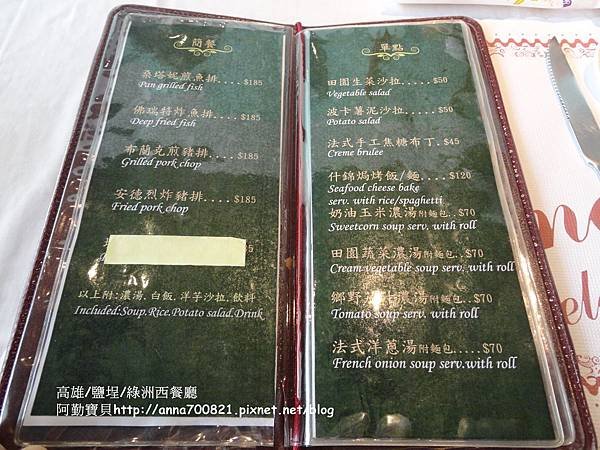 簡餐
桑塔妮煎魚排.....$185
Pan grilled fish
佛瑞特炸魚排....$185
Deep fried fish
布蘭克煎豬排....$185
Grilled pork chop
安德烈炸豬排....$185
Fried pork chop
以上附:濃湯.白飯.洋芋沙拉.飲料
Included:Soup.Rice.Potato salad.Drink
單點
田園生菜沙拉.....$50
Vegetable salad
波卡薯泥沙拉.....$50
Potato salad
法式手工焦糖布丁.$45
Creme brulee
什錦焗烤飯/麵....$120
Seafood cheese bake
serv. with rice/spaghetti
奶油玉米濃湯附麵包..$70
Sweetcorn soup serv. with roll
田園蔬菜濃湯附麵包..$70
Cream vegetable soup serv. with roll
鄉野 濃湯附麵包..$70
Tomato soup serv. with roll
法式洋蔥湯附麵包.....$70
French onion soup serv.with roll
高雄/鹽埕/綠洲西餐廳
阿勤寶貝http://anna700821.pixnet.net/blog